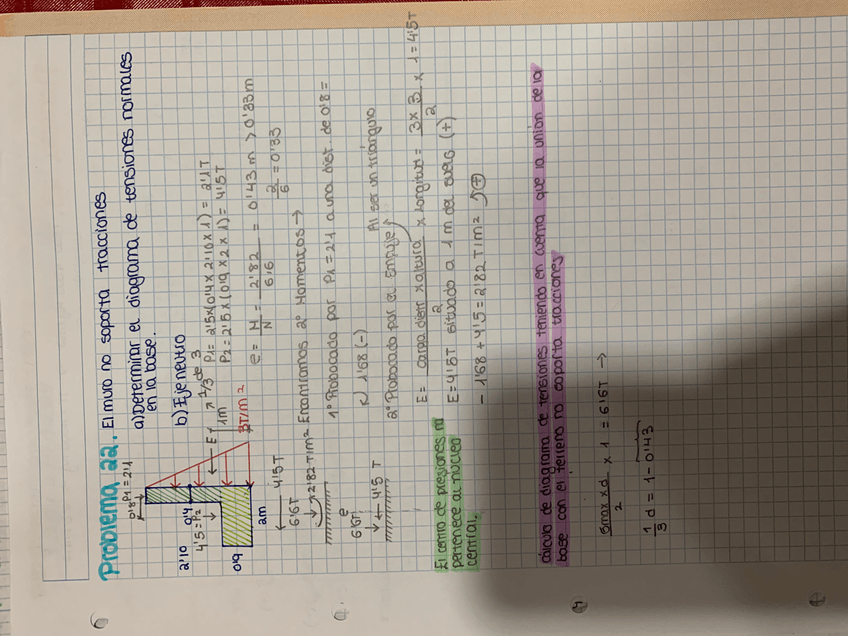 Problema 22. El muro no soporta tracciones
a) Determinar el diagrama de tensiones normales
en la base.
b) Eje neutro
0'8 P1 = 2'1
2'10
0'4
4'5 = P2
0'9
2m
E
1/3 de 3
1m
3T/m2
P1 = 2'5x(0'4 x 2'10 x 1) = 2'1T
P2 = 2'5 x (0'9 x 2 x 1) = 4'5T
e = M/N = 2'82/6'6 = 0'43 m > 0'33m
2/6 = 0'33
4'5T
6'6T
2'82 T/m2
Encontramos 2º Momentos →
1º Probocado por P1 = 2'1 a una dist. de 0'8 =
1'68 (-)
e
6'6T
4'5 T
2º Probocado por el Empuje
Al ser un triángulo
E = carga distr x altura / 2 x longitud = 3 x 3 / 2 x 1 = 4'5T
E = 4'5T situado a 1m del suelo (+)
- 1'68 + 4'5 = 2'82 T/m2 (+)
El centro de presiones no
pertenece a núcleo
central.
cálculo de diagrama de tensiones teniendo en cuenta que la unión de la
base con el terreno no soporta tracciones
σmax x d / 2 x 1 = 6'6T →
1/3 d = 1 - 0'43